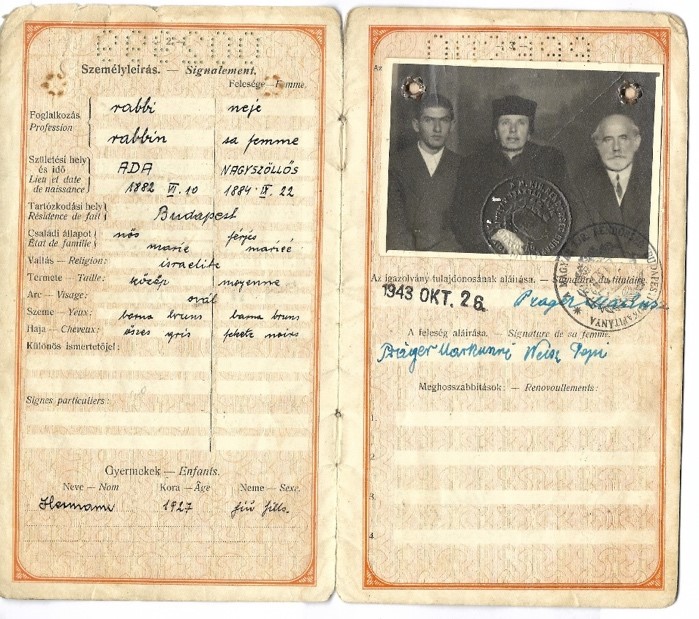 Személyleírás. — Signalement.
Felesége — Femme.
Foglalkozás rabbi neje
Profession rabbin sa femme
Születési hely ADA NAGYSZÖLLŐS
és idő
Lieu et date 1882 VI. 10 1884 IX. 22
de naissance:
Tartózkodási hely Budapest
Résidence de fait:
Családi állapot nős férjes
État de famille: marié mariée
Vallás — Religion: israelite
Termete — Taille: közép moyenne
Arc — Visage: ovál
Szeme — Yeux: barna bruns barna bruns
Haja — Cheveux: őszes gris fekete noirs
Különös ismertetőjel:
Signes particuliers:
Gyermekek — Enfants.
Neve — Nom Kora — Âge Neme — Sexe.
Hermann 1927 fiú fils.
Az
Az igazolvány tulajdonosának aláírása. — Signature du titulaire.
1943 OKT. 26.
Prager Markus
A feleség aláírása. — Signature de sa femme.
Práger Markusné Weisz Pepi
Meghosszabbítások: — Renouvellements:
1.
2.
3.
4.